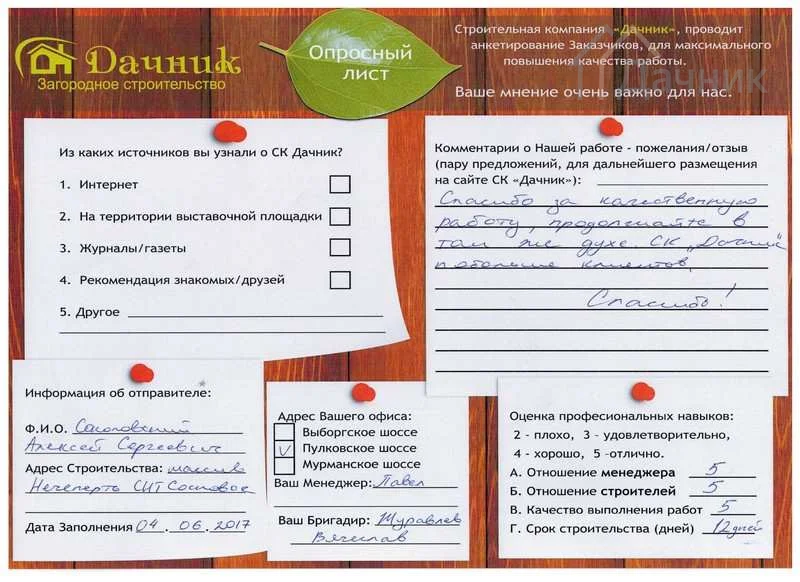 Дачник
Загородное строительство
Опросный
лист
Строительная компания «Дачник», проводит
анкетирование Заказчиков, для максимального
повышения качества работы.
Ваше мнение очень важно для нас.
Дачник
Из каких источников вы узнали о СК Дачник?
1. Интернет
2. На территории выставочной площадки
3. Журналы/газеты
4. Рекомендация знакомых/друзей
5. Другое
Комментарии о Нашей работе - пожелания/отзыв
(пару предложений, для дальнейшего размещения
на сайте СК «Дачник»):
Спасибо за качественную
работу, продолжайте в
том же духе. СК „Дачник"
побольше клиентов.
Спасибо!
Информация об отправителе:
Ф.И.О.
Алексей Сергеевич
Адрес Строительства: массив
СНТ Сосновое
Дата Заполнения 04.06.2017
Адрес Вашего офиса:
Выборгское шоссе
V Пулковское шоссе
Мурманское шоссе
Ваш Менеджер: Павел
Ваш Бригадир: Журавлев
Вячеслав
Оценка професиональных навыков:
2 - плохо, 3 - удовлетворительно,
4 - хорошо, 5 -отлично.
А. Отношение менеджера 5
Б. Отношение строителей 5
В. Качество выполнения работ 5
Г. Срок строительства (дней) 12 дней